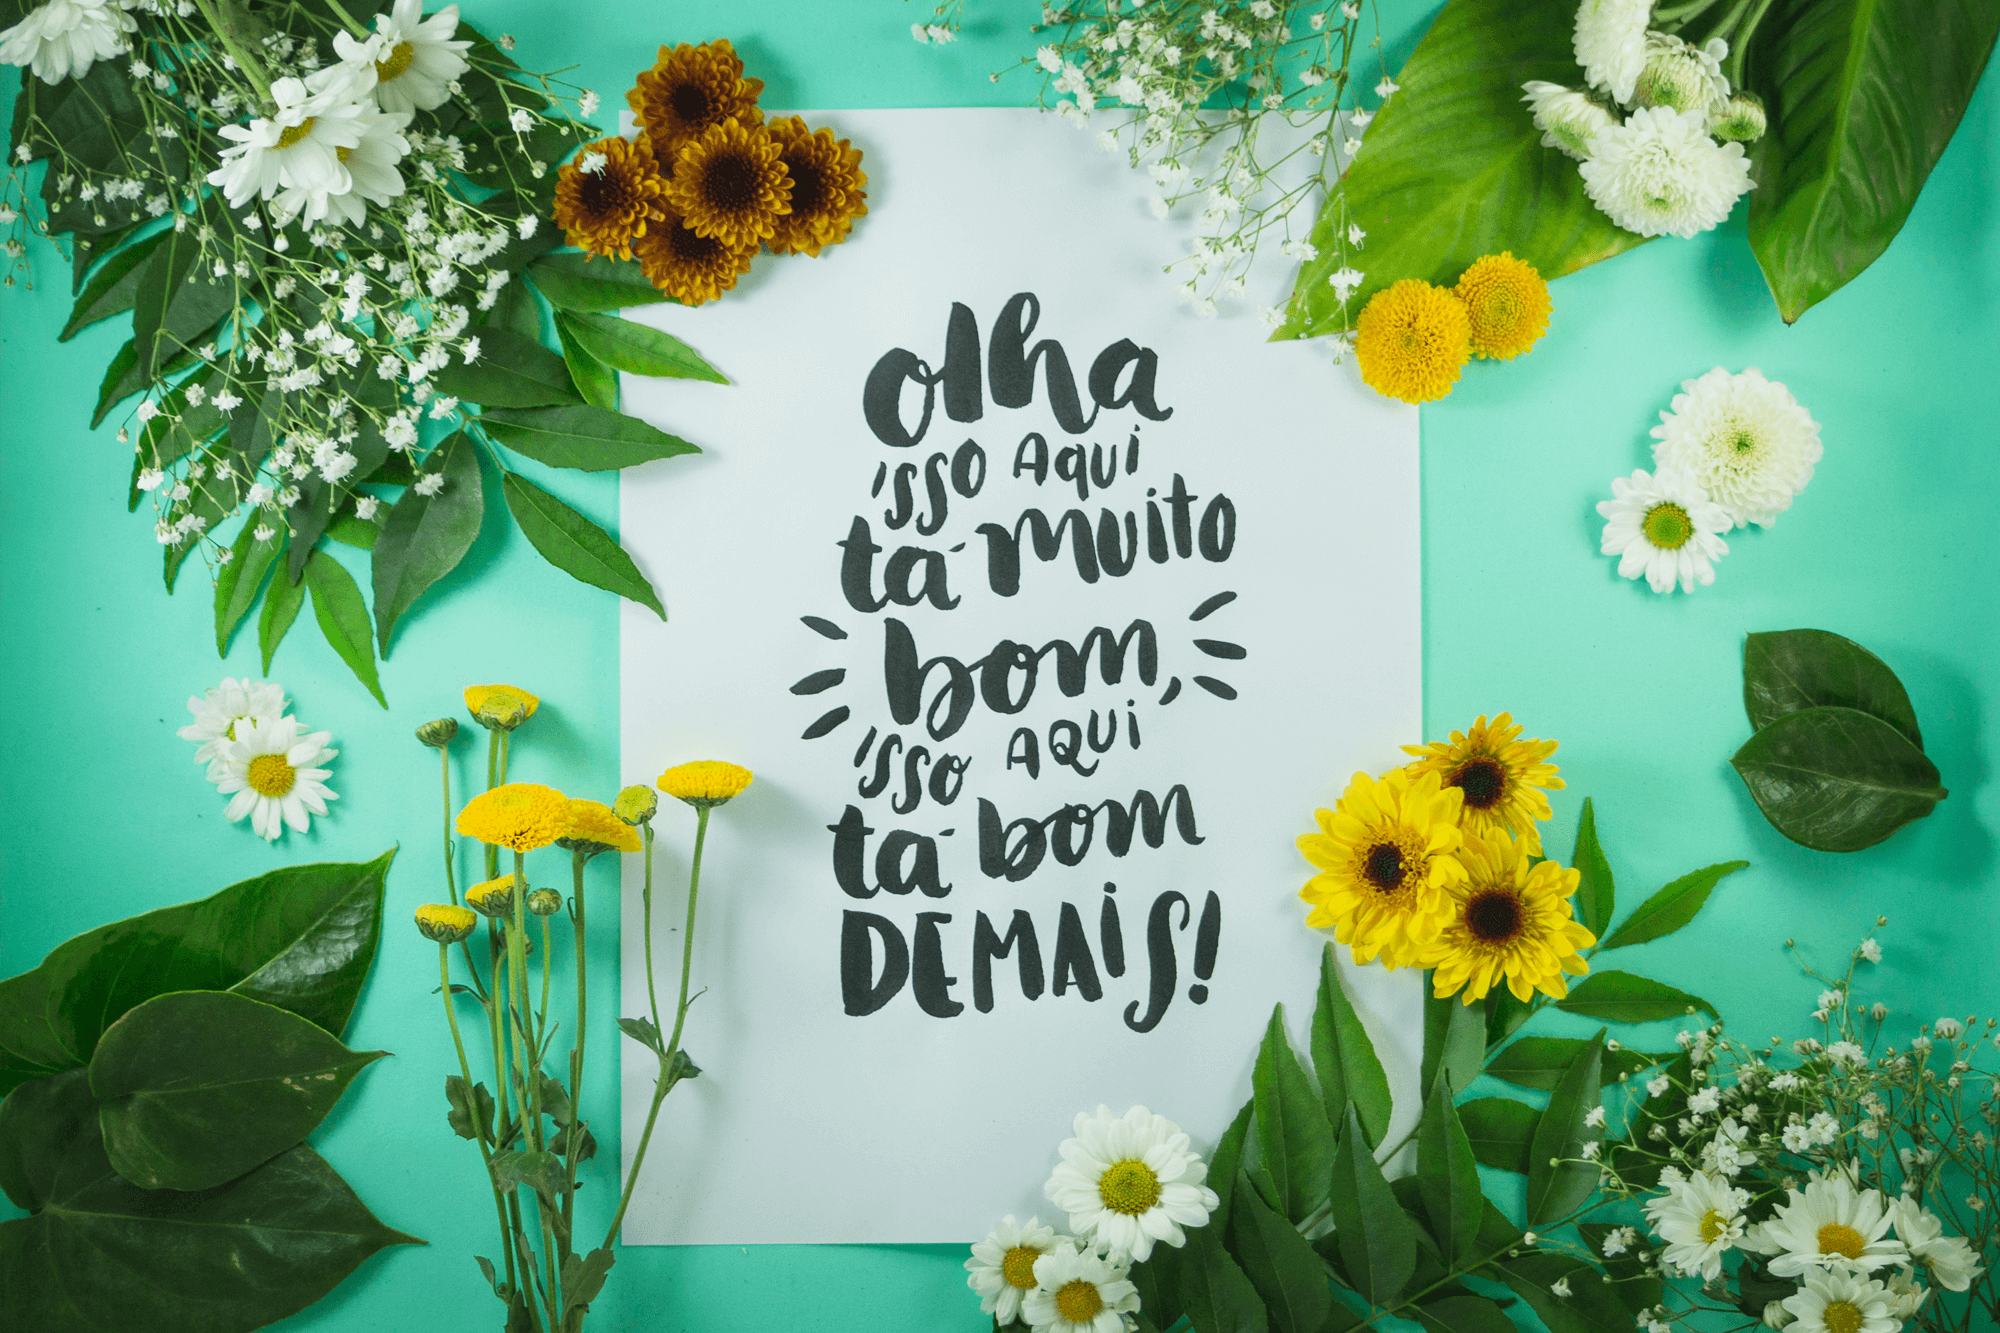 olha
isso AQUI
tá MUITO
bom,
isso AQUI
tá bom
DEMAIS!